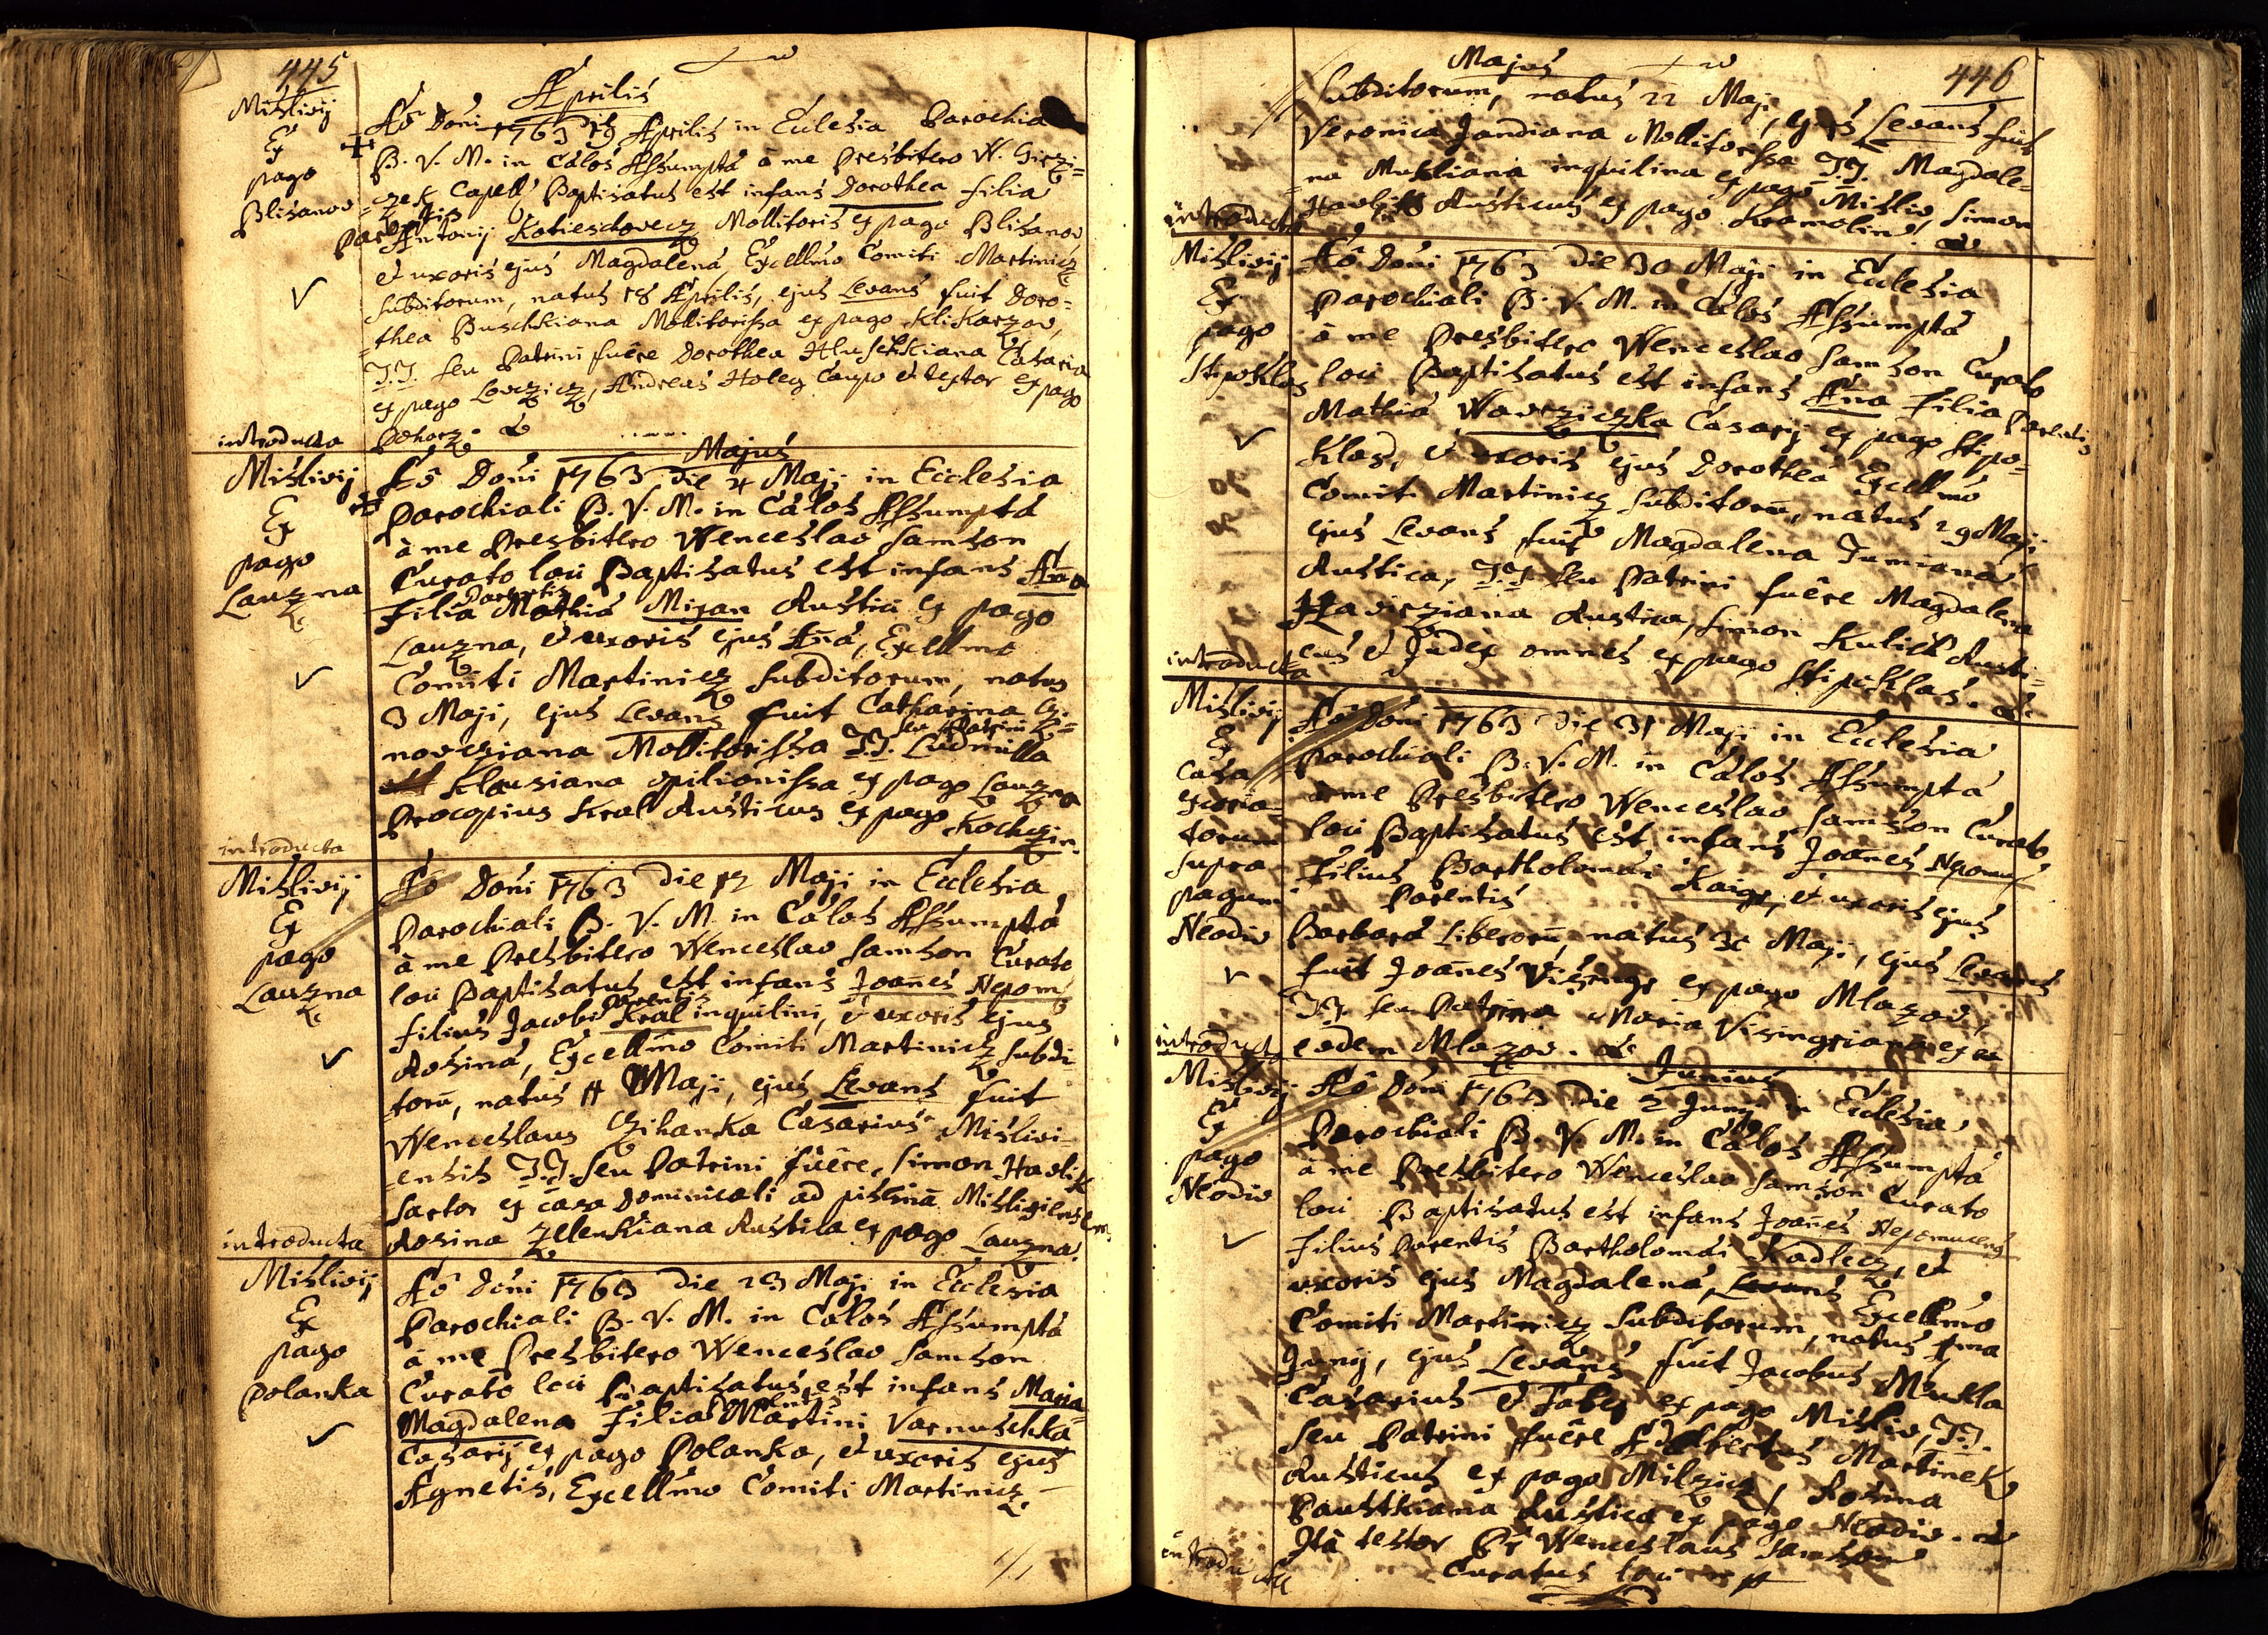 445
Aprilis
Mislivij
Ex
pago
Blisanov
Aō Doni 1763 19 Aprilis in Eclesia Parochia
B. V. M. in Cælos Assumptá â me Presbitero W. Girzi=
=czek Capell, Baptisatus est infans Dorothea filia
parentis
Antonij Kotieschovecz Mollitoris ex pago Blisanov
et uxoris ejus Magdalená, Excellmo Comiti Martinicz
subditorum, natus 18 Aprilis, ejus Levans fuit Doro=
=thea Buschkiana Mollitorissa ex pago Klikarzov,
T.T. seu Patrini fuêre Dorothea Hluschkiana Casaria
ex pago Lovczicz, Andreas Holey Caupo et textor ex pago
Pohorz.
introducta
Majus
Mislivij
Ex
pago
Lauzna
Aō Doni 1763 die 4 Maji in Ecclesia
Parochiali B. V. M. in Cælos Assumptá
à me Presbitero Wenceslao Samson
Curato loci Baptisatus est infans Ana
Parentis
Filia Mathiá Mizan Rustici ex pago
Lauzna, et uxoris ejus Aná, Excellmo
Comiti Martinicz subditorum, natus
3 Maji, ejus Levans fuit Catharina
seu Patrini
novcziana Mollitorissa T.T. Ludmilla
Klausiana opilionissa ex pago Lauzna
Procopius Kral Rusticus ex pago Kochzin.
introducta
Mislivij
Ex
pago
Lauzna
Aō Doni 1763 die 12 Maji in Ecclesia
Parochiali B. V. M. in Cælos Assumptá
à me Presbitero Wenceslao Samson Curato
loci Baptisatus est infans Joanes Nepom
Parentis
filius Jacobi Kral inquilini, et uxoris ejus
Rosiná, Excellmo Comiti Martinicz subdi
torū, natus 11 Maji, ejus Levans fuit
Wenceslaus Czihanka Casarius Mislivi-
=ensis T.T. seu Patrini fuêre, Simon Havlik
Sartor ex casa Domunicali ad piscinā Misliviensem
Rosina Zelenkiana Rustica ex pago Lauzna.
introducta
Mislivij
Ex
pago
Polanka
Aō Doni 1763 die 23 Maji in Ecclesia
Parochiali B. V. M. in Cælos Assumptá
à me Presbitero Wenceslao Samson
Curato loci Baptisatus est infans Maria
Parentis
Magdalena Filia Martini Varnuschka
Casarij ex pago Polanka, et uxoris ejus
Agnetis, Excellmo Comiti Martinicz
446
Majus
subditorum, natus 22 Maji, ejus Levans fuit
Veronica Jandiana Mollitorissa T.T. Magdale=
=na Mukliana inquilina ex pago Misliv Simon
Havlik Rusticus ex pago Kramolin.
introducta
Mislivij
Ex
pago
Stipoklas
Aō Doni 1763 die 30 Maji in Ecclesia
Parochiali B. V. M. in Cælos Assumptá
à me Presbitero Wenceslao Samson Curato
loci Baptisatus est infans Ana Filia Parentis
Mathiá Wavrziczka Casarij ex pago Stipo=
klas, et uxoris ejus Dorotheá Excellmo
Comiti Martinicz subditorū, natus 29 Maji
ejus Levans fuit Magdalena Tumiana
Rustica, T.T. seu Patrini fuêre Magdalena
Havirziana Rustica, Simon Kulich Rusti=
cus et Judex omnes ex pago Stipoklas.
introducta
Mislivij
Ex
Casa
excoria-
torum
supra
pagum
Neodiv
Aō Doni 1763 die 31 Maji in Ecclesia
Parochiali B. V. M. in Cælos Assumptá
à me Presbitero Wenceslao Samson Curato
loci Baptisatus est infans Joanes Nepomu
Filius Bartholomái Kaigr, et uxoris ejus
Parentis
Barbará Liberorū, natus 30 Maji, ejus Levans
fuit Joanes Visingr ex pago Mlazov,
T.T. seu Patrina Maria Visingriana ex
eodem Mlazov.
introducta
Junius
Mislivij
Ex
pago
Neodiv
Aō Doni 1763 die 2 Junij in Ecclesia
Parochiali B. V. M. in Cælos Assumptá
à me Presbitero Wenceslao Samson Curato
loci Baptisatus est infans Joanes Nepomucens
Filius Parentis Bartholomái Kadlecz, et
uxoris ejus Magdalená, Levans Excellmo
Comiti Martinicz subditorum, natus 1ma
Junij, ejus Levans fuit Jacobus Mukla
Casarius et Faber ex pago Misliv, T.T.
seu Patrini fuêre Adalbertus Martinek
Rusticus ex pago Milzicz, Rosina
Paustkiana Rustica ex pago Neodiv.
Ità testor Pr Wenceslaus Samson
Curatus loci
introducta